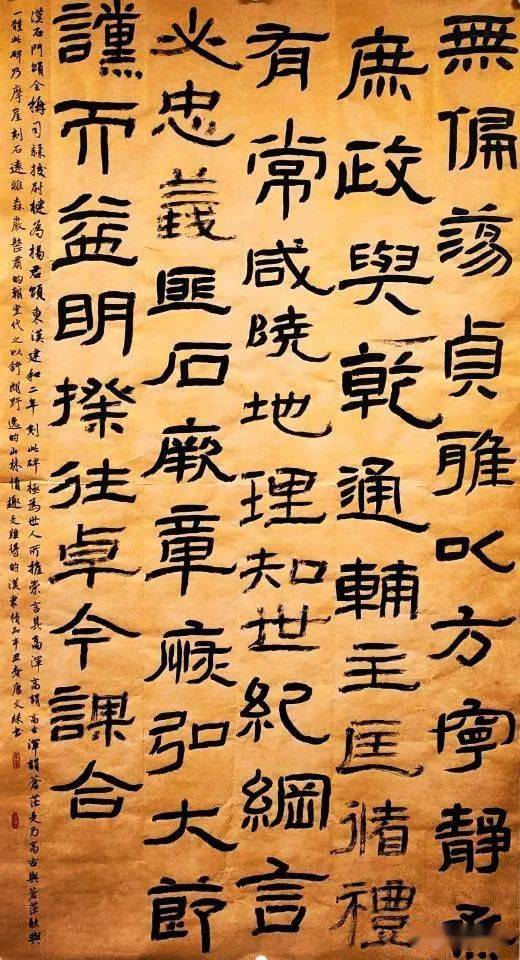 無偏蕩貞雅以方寧靜烝
庶政與乾通輔主匡循禮
有常咸曉地理知世紀綱言
必忠義匪石厥章恢弘大節
讜而益明揆往卓今謀合
漢石門頌全稱司隸校尉楗為楊君頌東漢建和二年刻此碑極為世人所推崇言其高渾高謂高古渾謂蒼茫是乃高古與蒼茫融與
一體此碑乃摩崖刻石遠離森嚴整肅的廟堂代之以舒朗野逸的山林情趣是難得的漢隸精品辛丑春唐文林書